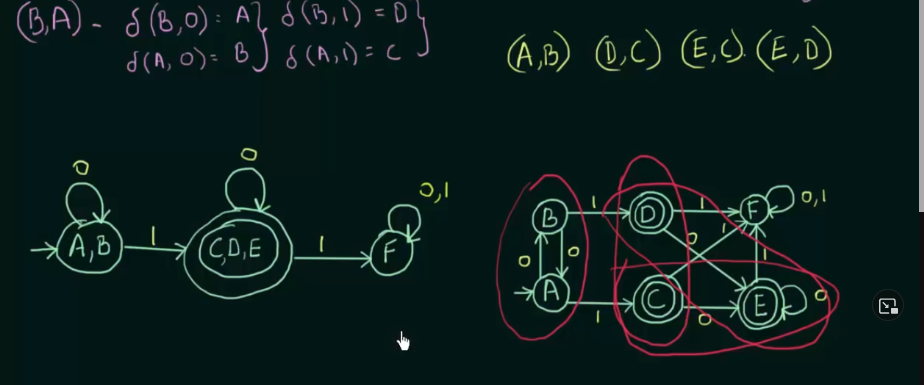 (B,A) - δ(B,0) = A } δ(B,1) = D }
δ(A,0) = B } δ(A,1) = C }
(A,B) (D,C) (E,C) (E,D)
0
0
0,1
A,B
1
C,D,E
1
F
B
1
D
1
F
0,1
0
0
0
1
1
A
1
C
0
E
0